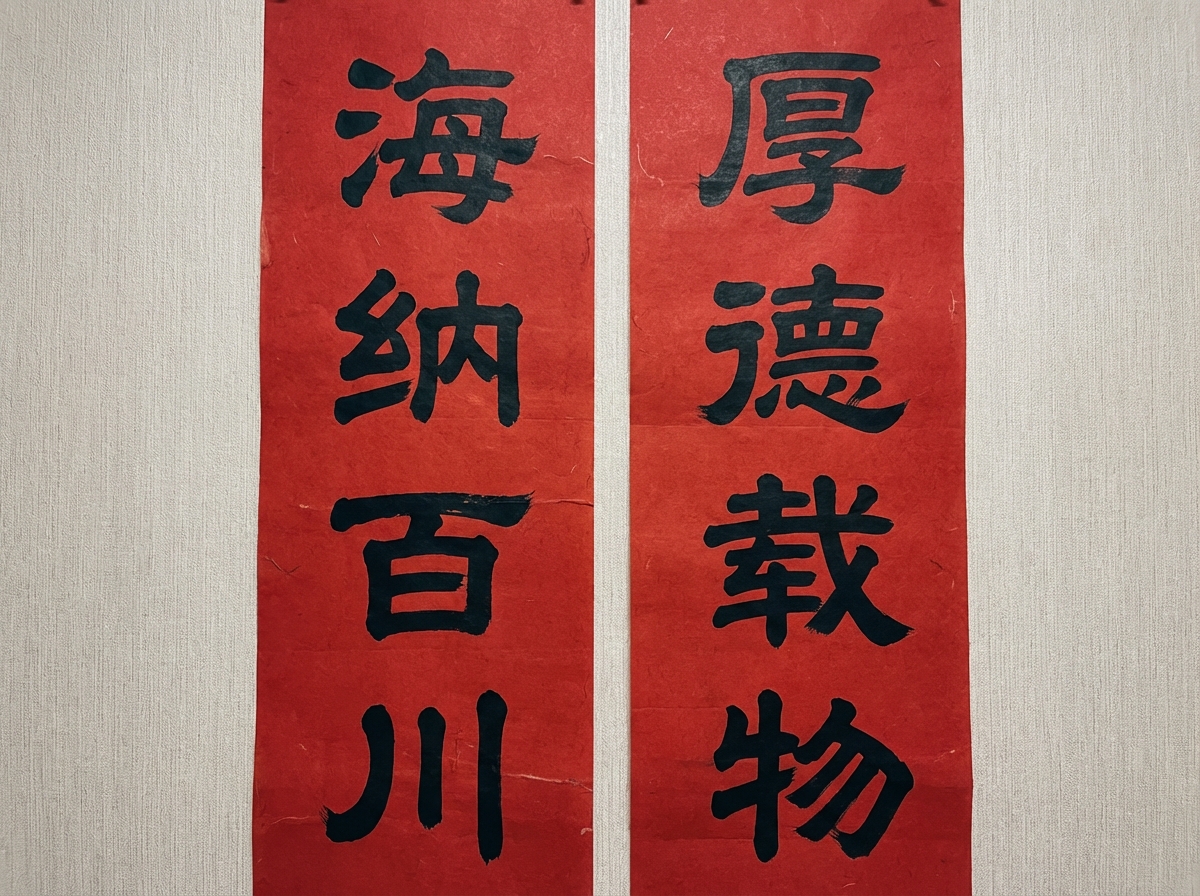 厚德载物
海纳百川